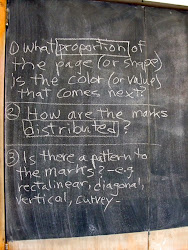 1) What proportion of
the page (or shape)
is the color (or value)
that comes next?
2) How are the marks
distributed?
3) Is there a pattern to
the marks? - e.g.
rectalinear, diagonal,
vertical, curvey -